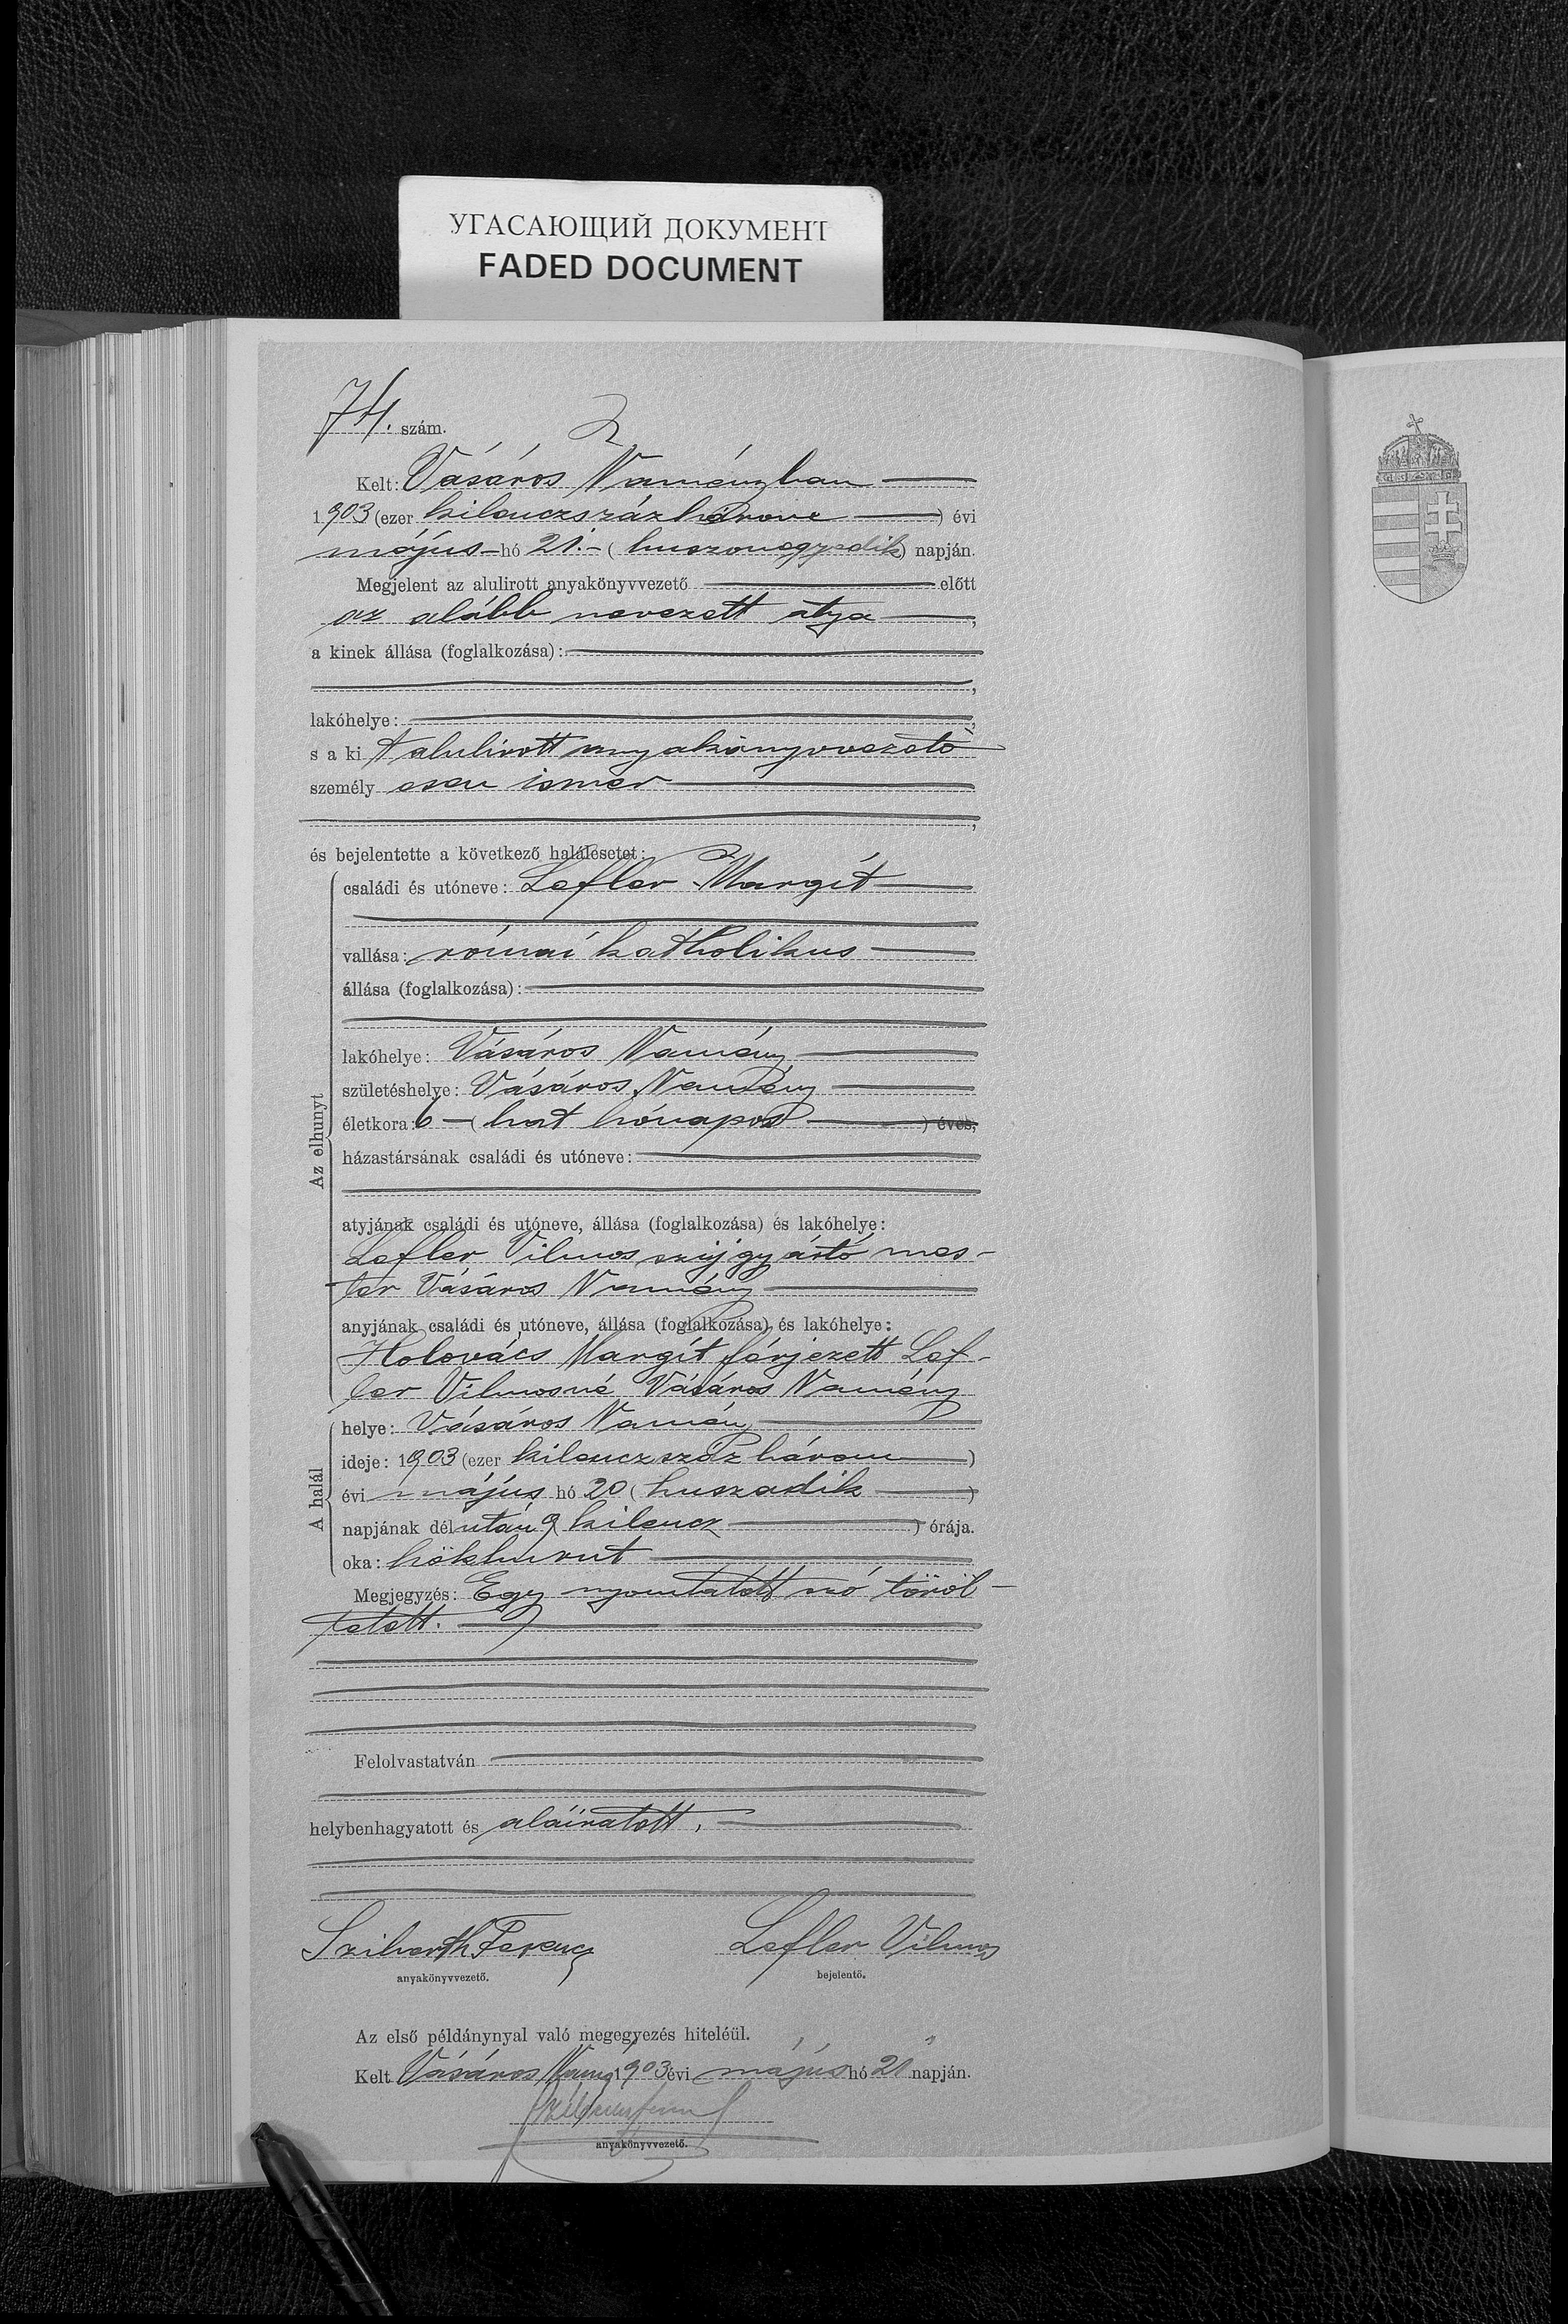 УГАСАЮЩИЙ ДОКУМЕНТ
FADED DOCUMENT
74. szám.
Kelt: Vásáros Naményban
1903 (ezer kilenczszázhárom) évi
május hó 21. (huszonegyedik) napján.
Megjelent az alulirott anyakönyvvezető előtt
az alább nevezett atya,
a kinek állása (foglalkozása):
,
lakóhelye: ,
s a ki t alulirott anyakönyvvezető
személy esen ismer
,
és bejelentette a következő halálesetet:
Az elhunyt
családi és utóneve: Lefler Margit
vallása: római katholikus
állása (foglalkozása):
lakóhelye: Vásáros Namény
születéshelye: Vásáros Namény
életkora: 6 (hat hónapos) éves,
házastársának családi és utóneve:
atyjának családi és utóneve, állása (foglalkozása) és lakóhelye:
Lefler Vilmos szijgyártó mes-
ter Vásáros Namény
anyjának családi és utóneve, állása (foglalkozása) és lakóhelye:
Holovács Margit férjezett Lef-
ler Vilmosné Vásáros Namény
A halál
helye: Vásáros Namény
ideje: 1903 (ezer kilenczszáz három)
évi május hó 20 (huszadik)
napjának délután 9 (kilencz) órája.
oka: hökhurut
Megjegyzés: Egy nyomtatott szó töröl-
tetett.
Felolvastatván
helybenhagyatott és aláiratott.
Ferencz Lefler Vilmos
anyakönyvvezető. bejelentő.
Az első példánynyal való megegyezés hiteléül.
Kelt Vásáros Namény 1903 évi május hó 21 napján.
anyakönyvvezető.